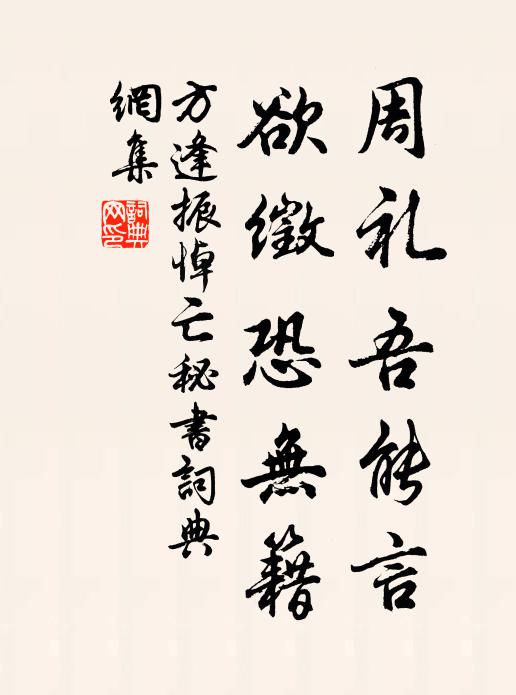 周礼吾能言
欲徵恐無籍
方逢振悼亡秘書詞典
網集
詞典
网印